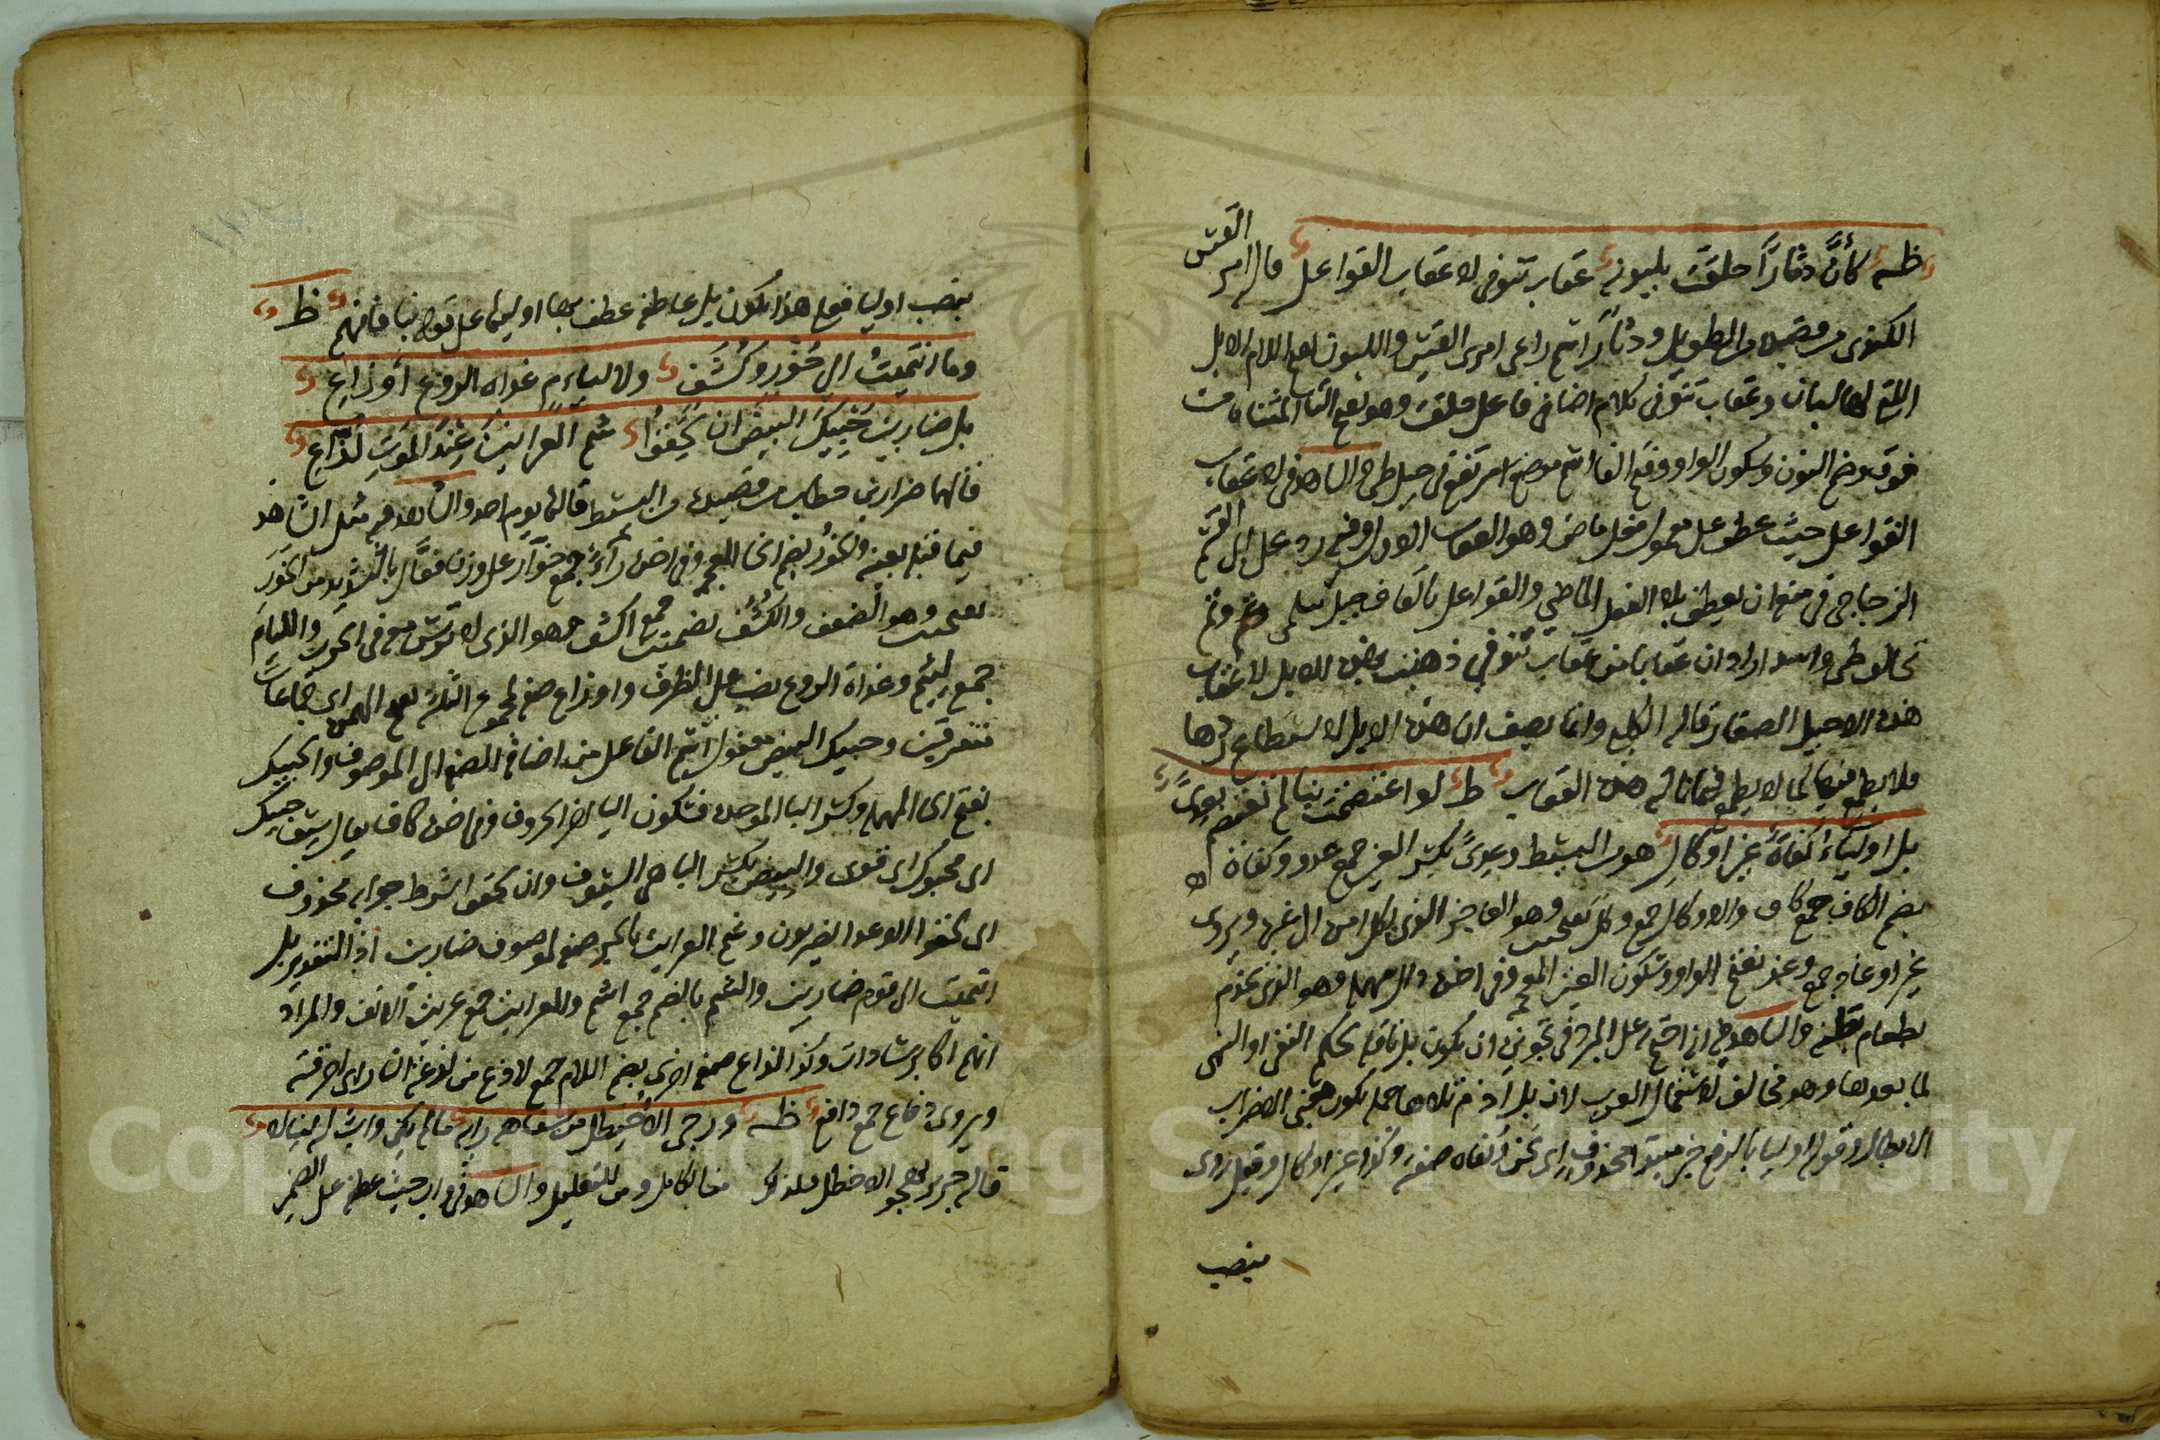 ظه كأنّ دثارًا حلقت بلبونه عقاب تنوفى لا عقاب القواعل قاله امرء القيس
الكندى من قصيدة من الطويل ودثار اسم راعى امرئ القيس واللبون بفتح اللام الابل
التى لها لبان وعقاب تنوفى كلام اضافى فاعل حلقت وهو بفتح التاء المثناة من
فوق وضم النون وسكون الواو وفتح الفا اسم موضع مرتفع فى جبل طى والشاهد فى لا عقاب
القواعل حيث عطف على معمول فعل ماض وهو العقاب الاول وفيه رد على ابى القسم
الزجاجى فى منعه ان يعطف بلا الفعل الماضى والقواعل بالقاف جبل سلمى
تحالف طى واسد اراد ان عقابا من عقاب تنوفى ذهبت بهذه الابل لا عقاب
هذه الاجبل الصغار قاله الكلبى وانما يصف ان هذه الابل لا يستطاع ردها
ولا يطمع فيها كما لا يطمع فيما نالته هذه العقاب ط لو اعتصمت بنا لم تعتصم بعدى
بل اولياء كفاة غير اوكال هو من البسيط وعدى بكسر العين جمع عدو وكفاة
بضم الكاف جمع كاف والاوكال جمع وكل بفتحتين وهو العاجز الذى يكل امره الى غيره ويروى
غير اوغاد جمع وغد بفتح الواو وسكون الغين المعجمة وفى اخره دال مهملة وهو الذى يخدم
بطعام بطنه والشاهد فيه انه احتج به على المبرد فى تجويزه ان يكون بل ناقلة حكم النفى او النهى
لما بعدها وهو مخالف لاستعمال العرب لان بل اذ تلاها جملة يكون معنى الاضراب
الابطال وقوله اوليا بالرفع خبر مبتدا محذوف اى نحن وكفاه صفته وكذا غير اوكال وقيل روى
بنصب
بنصب اوليا فعلى هذا تكون بل عاطفة عطف بها اوليا على قوله بنا فافهم ظ
وما انتميت الى خور وكشف ولا لئام غداة الروع اوزاع
بل ضاربين حبيك البيض ان لحقوا شم العرانين عند الموت لذاع
قالهما ضرار بن خطاب من قصيدة من البسيط قالها يوم احد والشاهد فيه مثل الشاهد
فيما قبله بعينه والخور بضم الخا المعجمة وفى اخره راء جمع خوار على وزن فعّال بالتشديد من الخور
بفتحتين وهو الضعف والكشف بضمتين جمع اكشف وهو الذى لا ترس معه فى الحرب واللئام
جمع لئيم وغداة الروع نصب على الظرف واوزاع صفة لمجموع الثلثة بفتح الهمزة اى جماعات
متفرقين وحبيك البيض مفعول اسم الفاعل من اضافة الصفة الى الموصوف والحبيك
بفتح الحا المهملة وكسر البا الموحدة وسكون اليا اخر الحروف وفى اخره كاف يقال سيف حبيك
اى محبوك اى قوى والبيض بكسر البا هى السيوف وان لحقوا شرط جوابه محذوف
اى لحقوا الاعدا يضربون وشم العرانين بالجر صفة لموصوف ضاربين اذ التقدير بل
انتميت الى قوم ضاربين والشم بالضم جمع اشم والعرانين جمع عرنين الانف والمراد
انهم اكابر سادات وكذا لذاع صفة اخرى بضم اللام جمع لاذع من لذعته النار اى احرقته
ويروى دفاع جمع دافع ظه ورجى الاخيطل من سفاهة رايه ما لم يكن واب له لينالا
قاله جرير يهجو الاخطل من الكامل ومن للتعليل والشاهد فى واب حيث عطف على الضمير